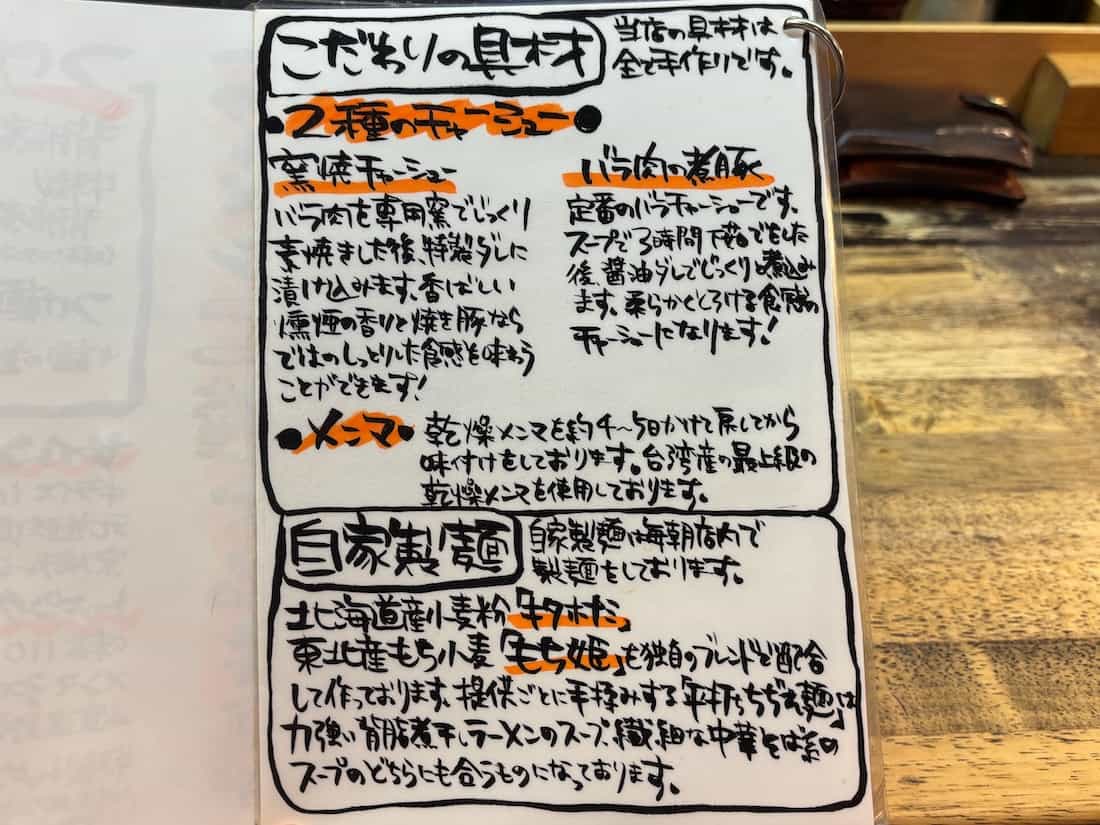 こだわりの具材
当店の具材は
全て手作りです。
●2種のチャーシュー●
窯焼チャーシュー
バラ肉を専用窯でじっくり
素焼きました後、特製ダレに
漬け込みます。香ばしい
燻煙の香りと焼き豚なら
ではのしっとりした食感を味わう
ことができます!
バラ肉の煮豚
定番のバラチャーシューです。
スープで3時間下茹でをした
後、醤油ダレでじっくり煮込み
ます。柔らかくとろける食感の
チャーシューになります!
●メンマ●
乾燥メンマを約4〜5日かけて戻してから
味付けをしております。台湾産の最上級の
乾燥メンマを使用しております。
自家製麺
自家製麺は毎朝店内で
製麺をしております。
北海道産小麦粉「キタホナミ」
東北産もち小麦「もち姫」を独自のブレンドで配合
して作っております。提供ごとに手揉みする「平打ちちぢれ麺」は
力強い背脂煮干しラーメンのスープ、繊細な中華そば系の
スープのどちらにも合うものになっております。